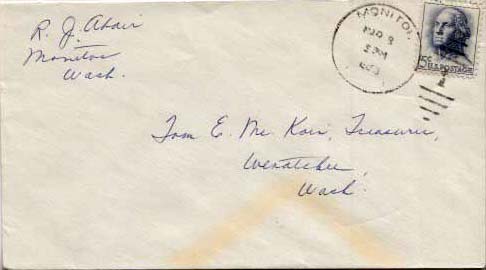 R. J. Adair
Monitor
Wash.
MONITOR
MAR 8
5 PM
5¢ U.S. POSTAGE
Tom E. Mc Koir, Treasurer,
Wenatchee,
Wash.